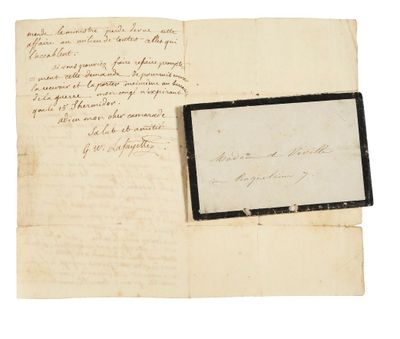 monde le ministre perde de vue cette
affaire au milieu de toutes celles qui
l'accablent.
si vous pouviez faire refaire prompte
-ment cette demande, je pourrais encore
la recevoir et la porter moi même au bureau
de la guerre, mon congé n'expirant
que le 15 Thermidor.
adieu mon cher camarade
Salut et amitié
G. W. Lafayette
Madame de
7.